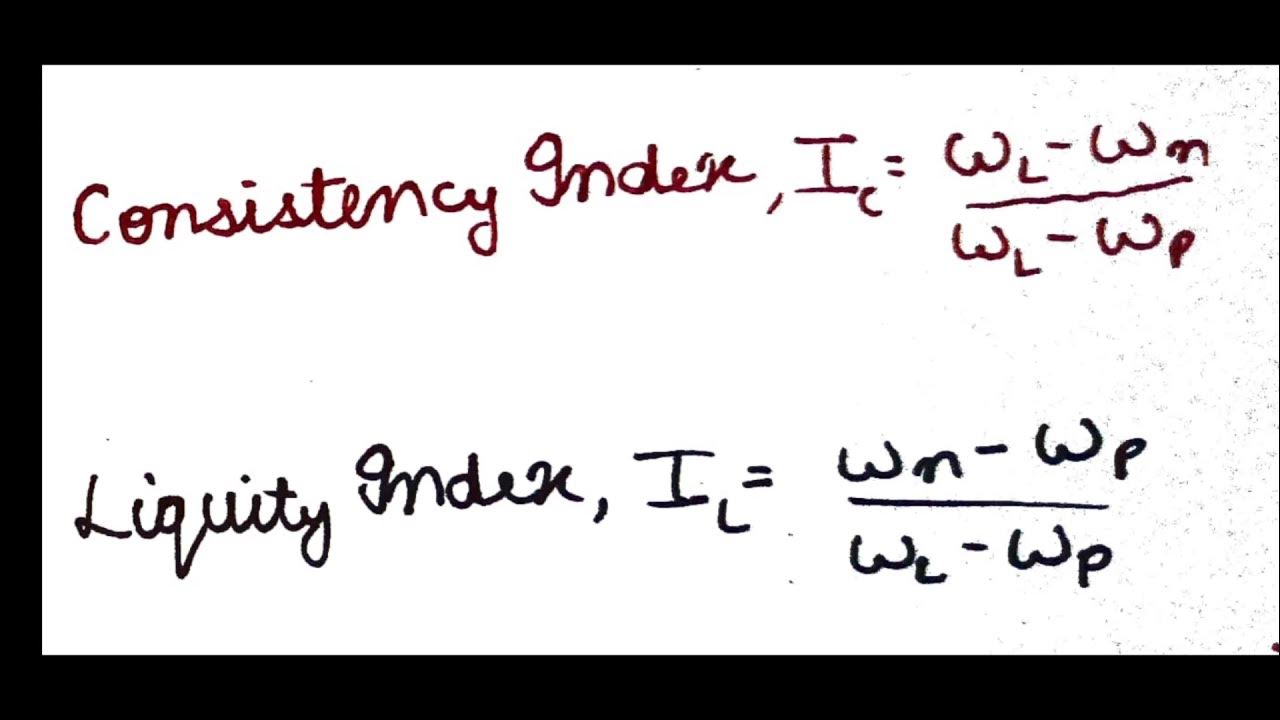 Consistency Index, I_c = (ω_L - ω_n) / (ω_L - ω_p)
Liquity Index, I_L = (ω_n - ω_p) / (ω_L - ω_p)